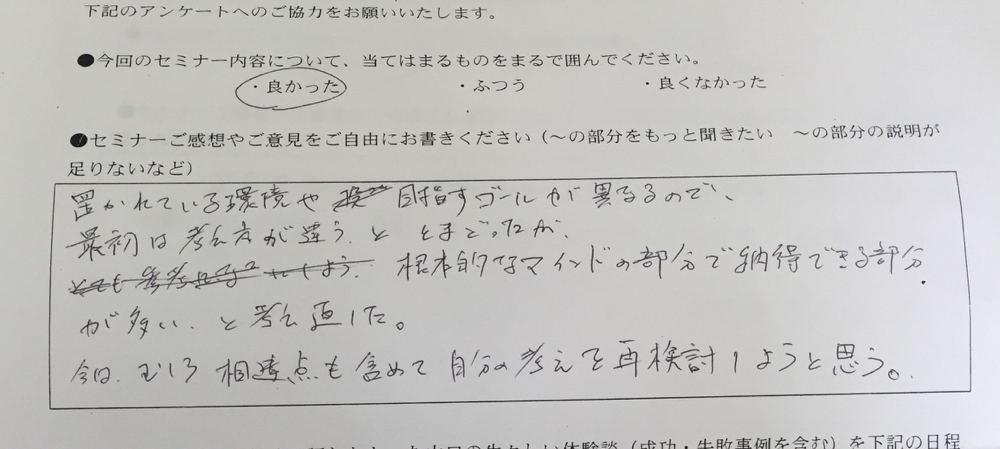 下記のアンケートへのご協力をお願いいたします。
●今回のセミナー内容について、当てはまるものをまるで囲んでください。
・良かった ・ふつう ・良くなかった
●セミナーご感想やご意見をご自由にお書きください（～の部分をもっと聞きたい　～の部分の説明が
足りないなど）
置かれている環境や 目指すゴールが異なるので、
最初は考え方が違う、と とまどったが、
根本的なマインドの部分で納得できる部分
が多い、と考え直した。
今日、むしろ相違点も含めて自分の考えを再検討しようと思う。
体験談（成功・失敗事例を含む）を下記の日程